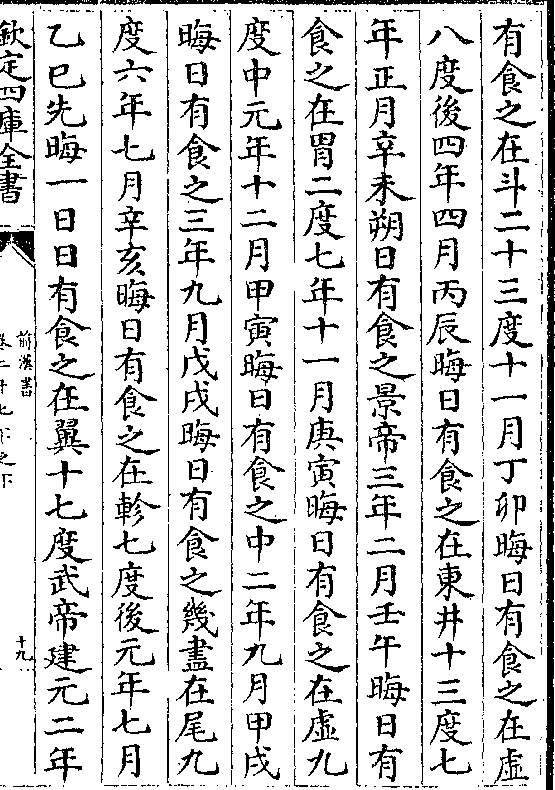 有食之在斗二十三度十一月丁卯晦日有食之在虚
八度後四年四月丙辰晦日有食之在東井十三度七
年正月辛未朔日有食之景帝三年二月壬午晦日有
食之在胃二度七年十一月庚寅晦日有食之在虚九
度中元年十二月甲寅晦日有食之中二年九月甲戌
晦日有食之三年九月戊戌晦日有食之幾盡在尾九
度六年七月辛亥晦日有食之在軫七度後元年七月
乙巳先晦一日日有食之在翼十七度武帝建元二年
欽定四庫全書
前漢書
卷二十七下之下
十九